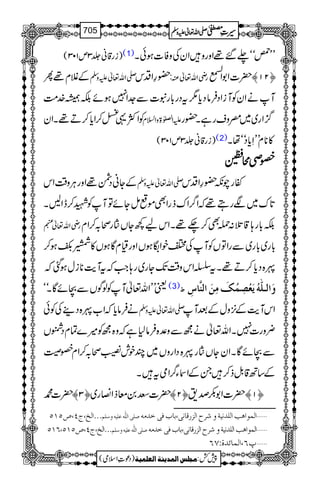 سیرتِ مصطفی صلی اللہ تعالیٰ علیہ وسلم
705
’’حمص‘‘ چلے گئے تھے اور وہیں ان کی وفات ہوئی۔ (1) (زرقانی جلد۳ ص۳۰۱)
﴿۱۲﴾ حضرت ابوالسمع رضی اللہ تعالیٰ عنہ: حضور اقدس صلی اللہ تعالیٰ علیہ وسلم کے غلام تھے پھر
آپ نے ان کو آزاد فرما دیا مگر یہ دربار نبوت سے جدا نہیں ہوئے بلکہ ہمیشہ خدمت
گزاری میں مصروف رہے۔ حضور علیہ الصلوۃ والسلام کو اکثر یہی غسل کرایا کرتے تھے۔ ان
کا نام ’’ایاد‘‘ تھا۔ (2) (زرقانی جلد۳ ص۳۰۱)
خصوصی محافظین
کفار چونکہ حضور اقدس صلی اللہ تعالیٰ علیہ وسلم کے جانی دشمن تھے اور ہر وقت اس
تاک میں لگے رہتے تھے کہ اگر اک ذرا بھی موقع مل جائے تو آپ کو شہید کر ڈالیں۔
بلکہ بارہا قاتلانہ حملہ بھی کر چکے تھے۔ اس لئے کچھ جاں نثار صحابہ کرام رضی اللہ تعالیٰ عنہم
باری باری سے راتوں کو آپ کی مختلف خوابگاہوں اور قیام گاہوں کا شمشیر بکف ہو کر
پہرہ دیا کرتے تھے۔ یہ سلسلہ اس وقت تک جاری رہا جب کہ یہ آیت نازل ہو گئی کہ
وَاللّٰهُ یَعْصِمُکَ مِنَ النَّاسِ (3) یعنی ’’اللہ تعالیٰ آپ کو لوگوں سے بچائے گا۔‘‘
اس آیت کے نزول کے بعد آپ صلی اللہ تعالیٰ علیہ وسلم نے فرمایا کہ اب پہرہ دینے کی کوئی
ضرورت نہیں۔ اللہ تعالیٰ نے مجھ سے وعدہ فرما لیا ہے کہ وہ مجھ کو میرے تمام دشمنوں
سے بچائے گا۔ ان جاں نثار پہرہ داروں میں چند خوش نصیب صحابہ کرام خصوصیت
کے ساتھ قابل ذکر ہیں جن کے اسماء گرامی یہ ہیں۔
﴿۱﴾ حضرت ابوبکر صدیق ﴿۲﴾ حضرت سعد بن معاذ انصاری ﴿۳﴾ حضرت محمد
......المواهب اللدنية و شرح الزرقانی، باب فی خدمه صلی اللہ علیہ وسلم...الخ، ج٤، ص٥١٥
......المواهب اللدنية و شرح الزرقانی، باب فی خدمه صلی اللہ علیہ وسلم...الخ، ج٤، ص٥١٥، ٥١٦
......پ٦، المائدة: ٦٧
پیش کش: مجلس المدینة العلمية (دعوتِ اسلامی)